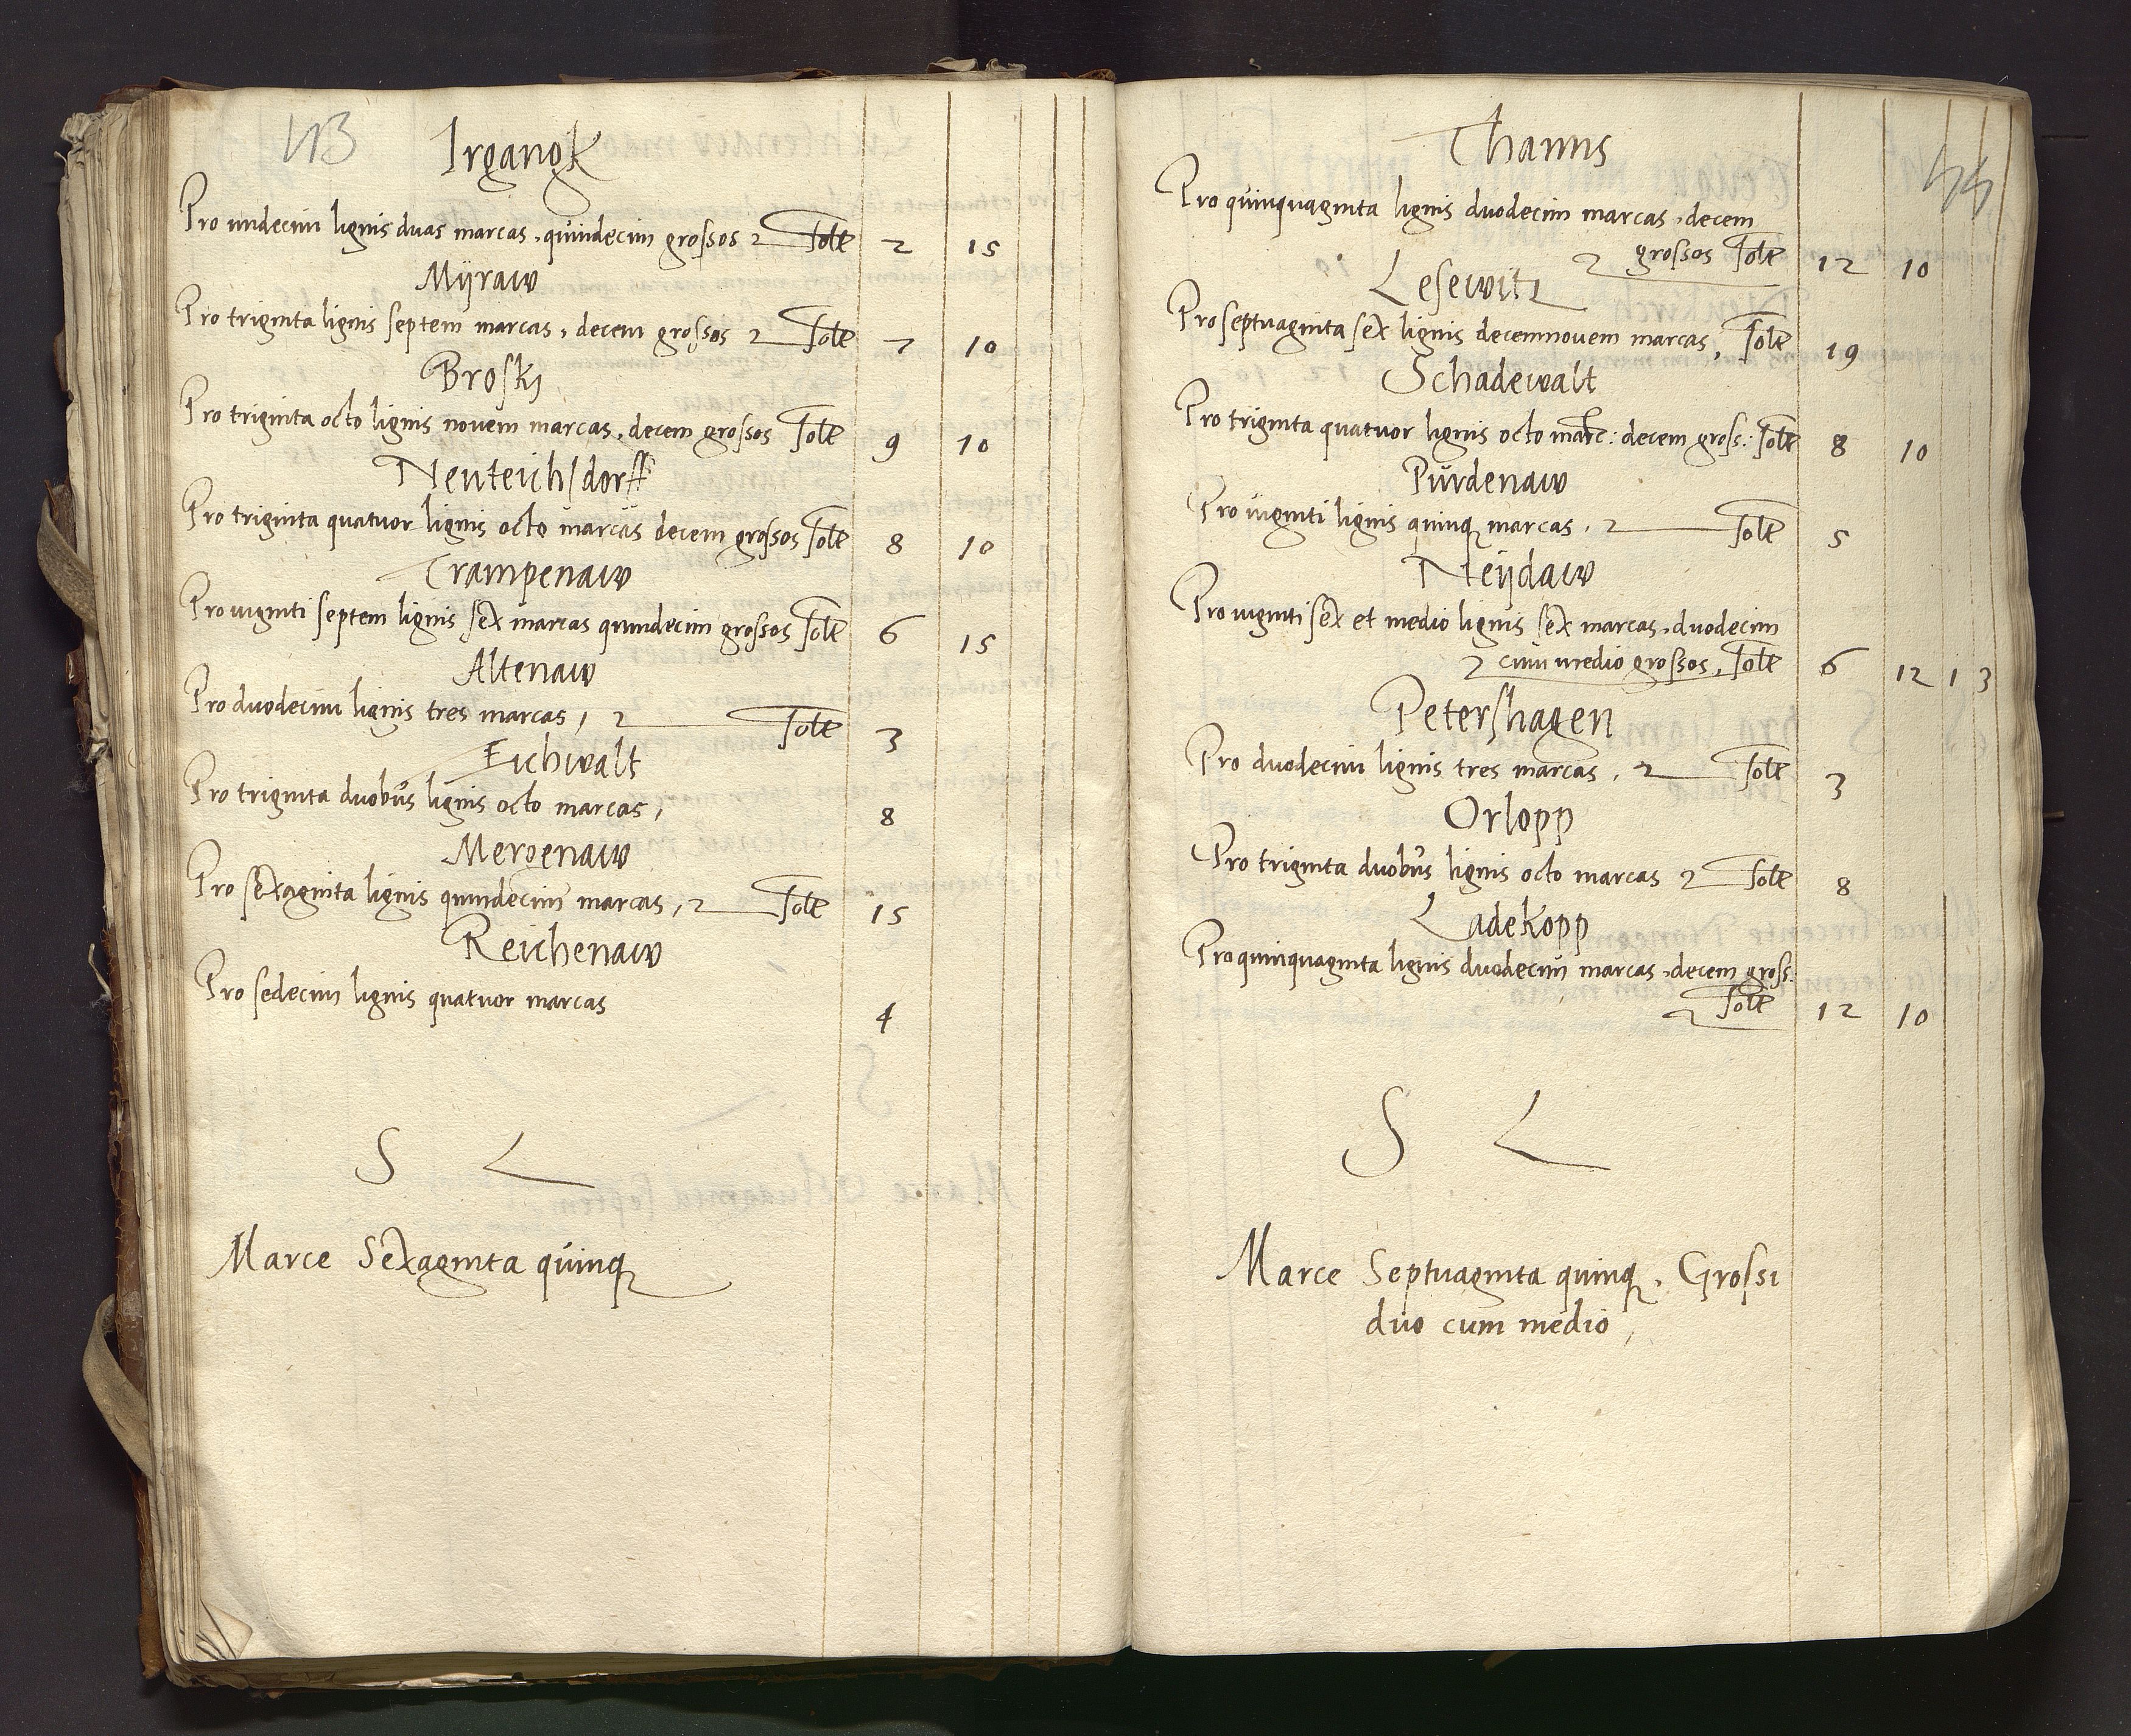 43
Irgangk
Pro undecim lignis duas marcas, quindecim grossos Solt 2 15
Mÿraw
Pro triginta lignis septem marcas, decem grossos Solt 7 10
Broski
Pro triginta octo lignis novem marcas, decem grossos Solt 9 10
Neuteichsdorff
Pro triginta quatuor lignis octo marcas decem grossos Solt 8 10
Trampenaw
Pro viginti septem lignis sex marcas quindecim grossos Solt 6 15
Altenaw
Pro duodecim lignis tres marcas, Solt 3
Eichwalt
Pro triginta duobus lignis octo marcas, 8
Mergenaw
Pro sexaginta lignis quindecim marcas, Solt 15
Reichenaw
Pro sedecim lignis quatuor marcas 4
S
Marce Sexaginta quinq
44
Thanns
Pro quinquaginta lignis duodecim marcas, decem
grossos Solt 12 10
Lesewitz
Pro septuaginta sex lignis decemnovem marcas, Solt 19
Schadewalt
Pro triginta quatuor lignis octo marc: decem gross: Solt 8 10
Purdenaw
Pro viginti lignis quinq marcas, Solt 5
Neÿdaw
Pro viginti sex et medio lignis sex marcas, duodecim
cum medio grossos, Solt 6 12 1 3
Petershagen
Pro duodecim lignis tres marcas, Solt 3
Orlopp
Pro triginta duobus lignis octo marcas Solt 8
Ladekopp
Pro quinquaginta lignis duodecim marcas, decem gross:
Solt 12 10
S
Marce Septuaginta quinq, Grossi
duo cum medio